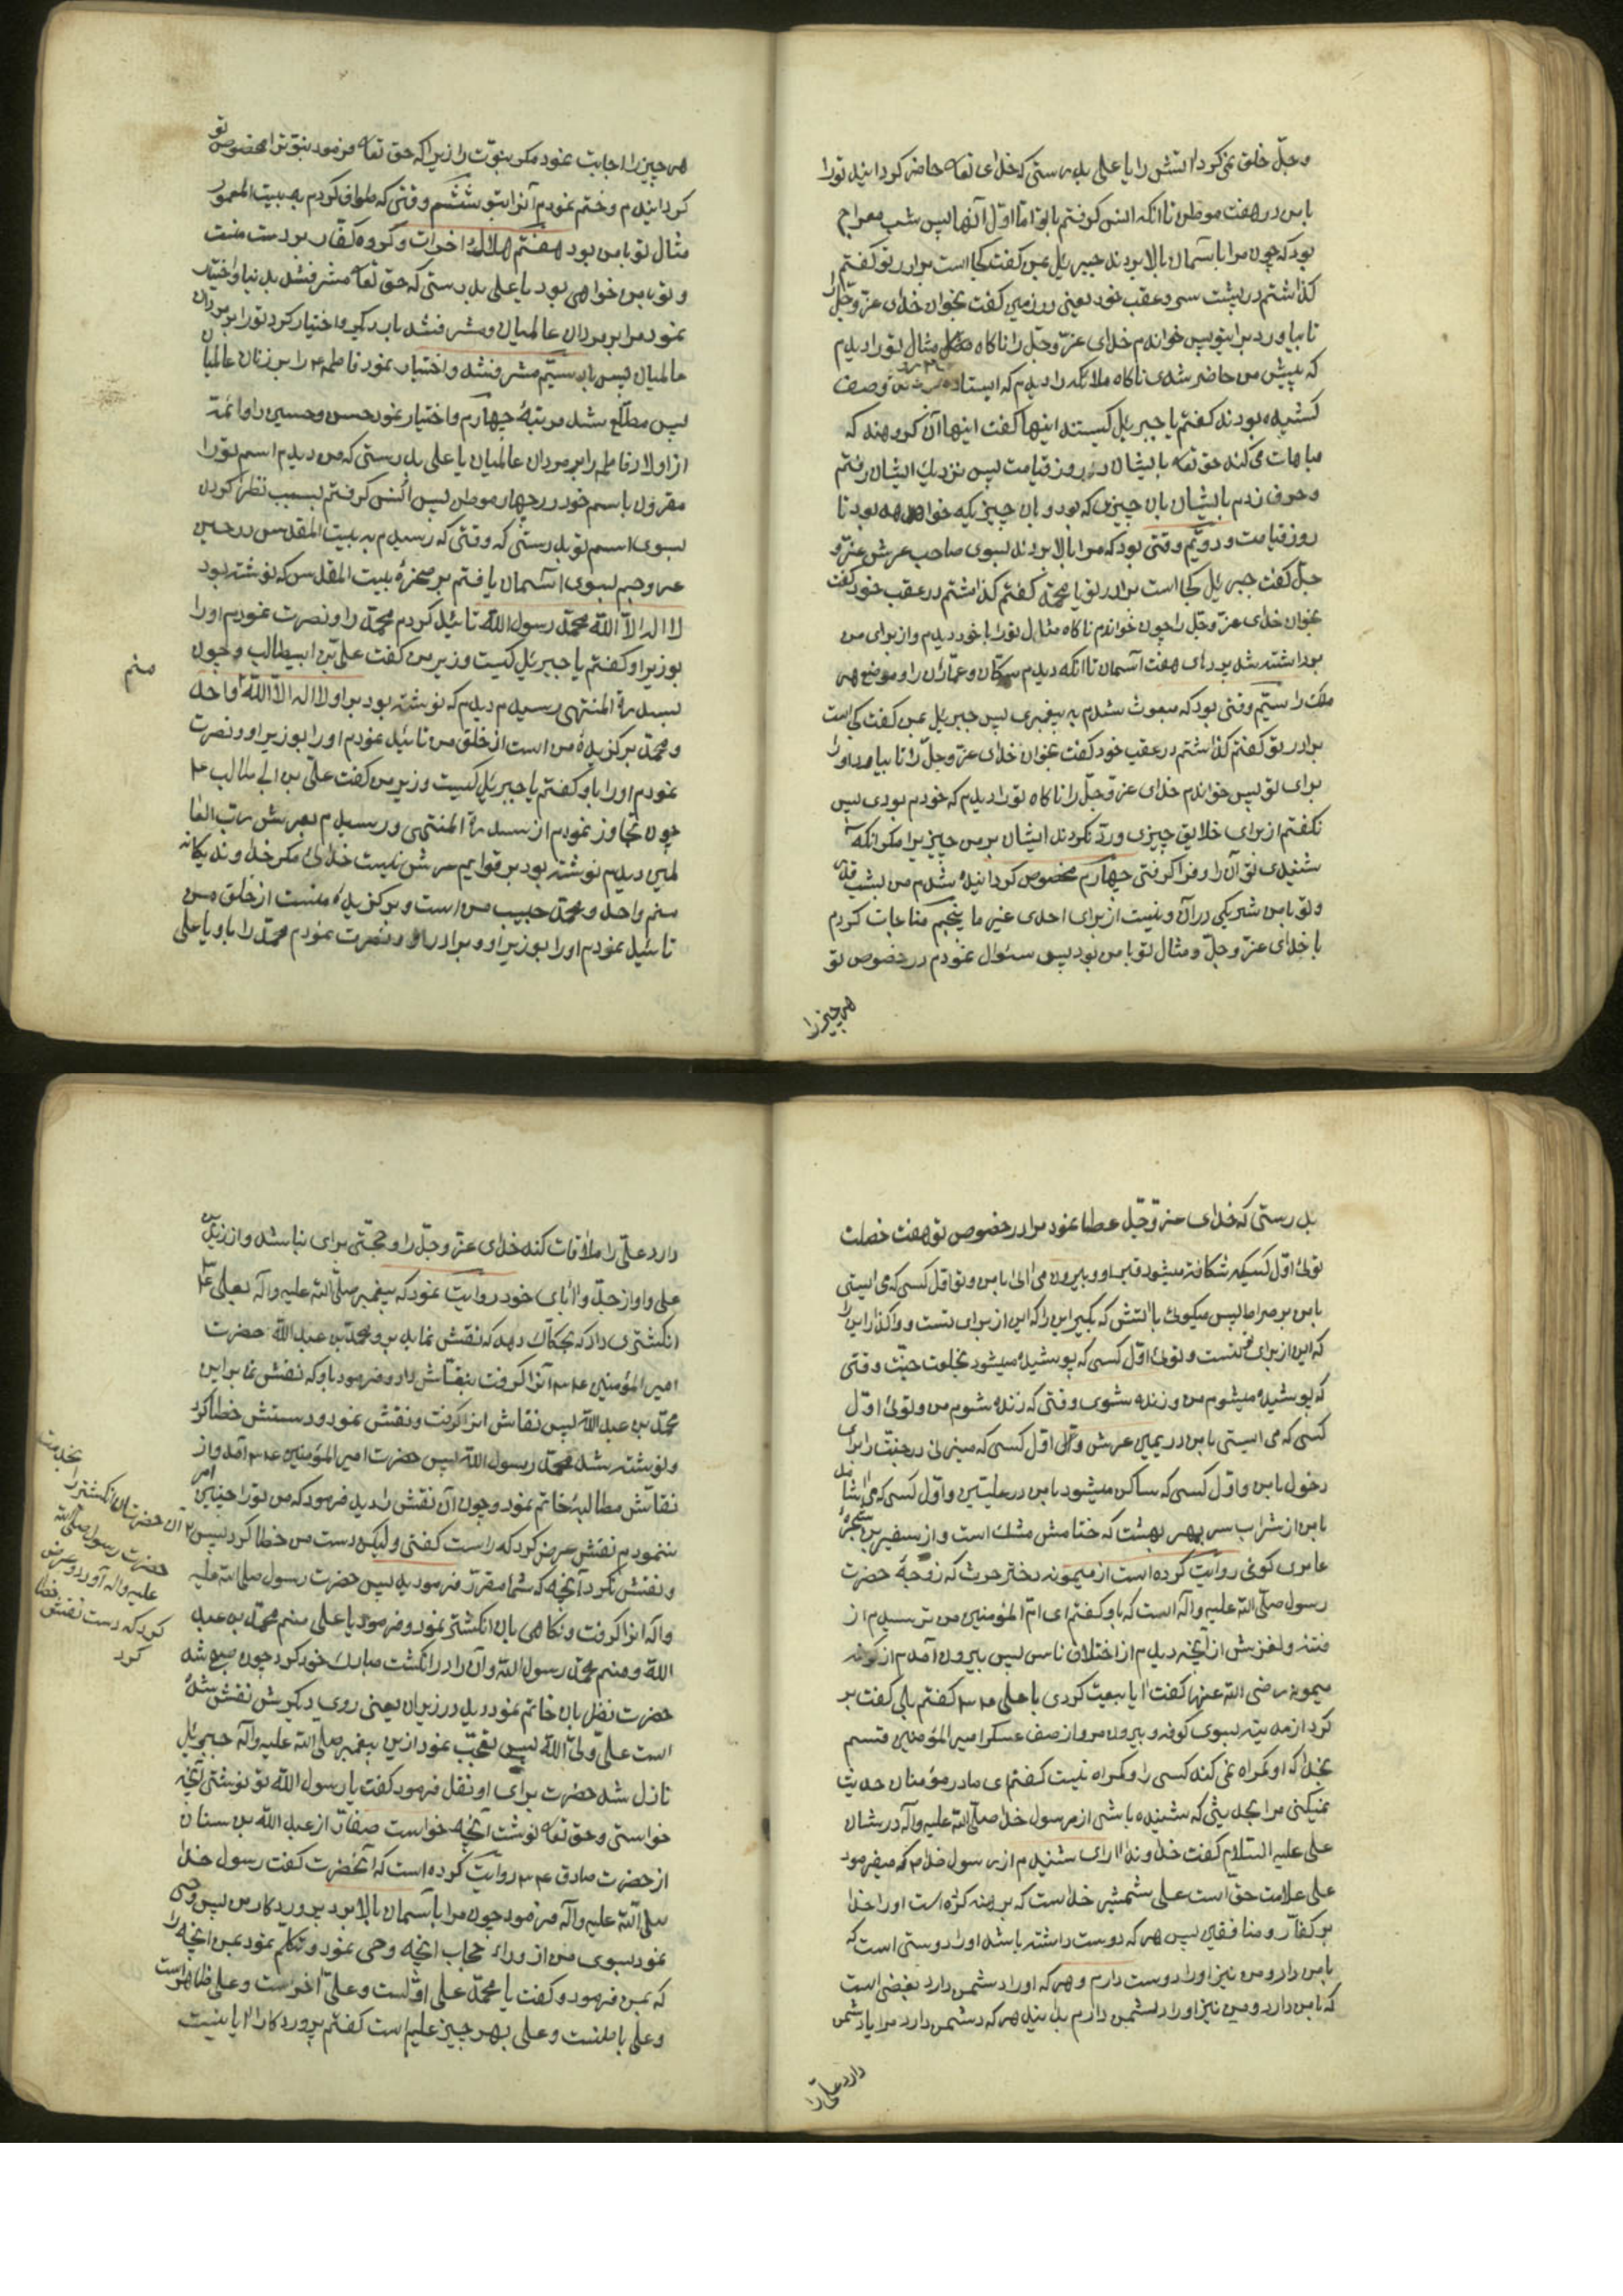 وجلّ خلق نمی‌کرد آتش را یا علی بدرستی که خدای تعالی حاضر گردانید تو را
با من در هفت موطن تا آنکه انس گرفتم با تو اما اوّل آنها پس شب معراج
بود که چون مرا بآسمان بالا بردند جبرئیل بمن گفت کجا است برادر تو گفتم
گذاشتم در پشت سر و عقب خود یعنی در زمین گفت بخوان خدای عزّ وجلّ را
تا بیاورد برای تو پس خواندم خدای عزّ وجلّ را ناگاه مثال تو را دیدم
که پیش من حاضر شدی ناگاه ملائکه را دیدم که ایستاده وصف
کشیده بودند گفتم یا جبرئیل کیستند اینها گفت اینها آن گروهند که
مباهات می‌کند حق تعالی بایشان در روز قیامت پس نزدیک ایشان رفتم
و حرف زدم بایشان بآن چیزی که بود و بآن چیزیکه خواهد بود تا
روز قیامت و دویّم وقتی بود که مرا بالا بردند بسوی صاحب عرش عزّ و
جلّ گفت جبرئیل کجا است برادر تو یا محمّد گفتم گذاشتم در عقب خود گفت
بخوان خدای عزّ وجلّ را چون خواندم ناگاه مثال تو را با خود دیدم و از برای من
برداشته شد پرده‌ای هفت آسمان تا آنکه دیدم سکّان و عمّاران را و موضع هر
ملک را سیّم وقتی بود که مبعوث شدم به پیغمبری پس جبرئیل بمن گفت کجا است
برادر تو گفتم گذاشتم در عقب خود گفت بخوان خدای عزّ وجلّ را تا بیاورد او را
برای تو پس خواندم خدای عزّ وجلّ را ناگاه تو را دیدم که خودم بودی پس
نگفتم از برای خلایق چیزی و ردّ نکردند ایشان بر من چیزیرا مگر آنکه
شنیدی تو آن را و فرا گرفتی چهارم مخصوص گردانیده شدم من بشب قدر
و تو با من شریکی در آن و نیست از برای احدی غیر ما پنجم مناجات کردم
با خدای عزّ وجلّ و مثال تو با من بود پس سئوال نمودم در خصوص تو
هر چیز را
هر چیز را اجابت نمود مگر نبوّت را زیرا که حق تعالی فرمود نبوّت را مخصوص تو
گردانیدم و ختم نمودم آنرا بتو ششم وقتی که طواف کردم به بیت المعمور
مثال تو با من بود هفتم هلاک اخرات و گروه کفّار بر دست منست
و تو با من خواهی بود یا علی بدرستی که حق تعالی مشرف شد بدنیا و اختیار
نمود مرا بر مردان عالمیان و مشرف شد بار دیگر و اختیار کرد تو را بر مردان
عالمیان پس بار سیّم مشرف شد و اختیار نمود فاطمه را بر زنان عالمیان
پس مطّلع شد مرتبهٔ چهارم و اختیار نمود حسن و حسین را و ائمّه
از اولاد فاطمه را بر مردان عالمیان یا علی بدرستی که من دیدم اسم تو را
مقرون باسم خود در چهار موطن پس اُنس گرفتم بسبب نظر کردن
بسوی اسم تو بدرستی که وقتی که رسیدم به بیت المقدس در حین
عروجم بسوی آسمان یافتم بر صخرهٔ بیت المقدس که نوشته بود
لا اله الّا اللّه محمّد رسول اللّه تائید کردم محمّد را و نصرت نمودم او را
بوزیر او گفتم یا جبرئیل کیست وزیر من گفت علیّ بن ابیطالب و چون
بسدرة المنتهی رسیدم دیدم که نوشته بود بر او لا اله الّا اللّه واحد
منم
و محمّد برگزیدهٔ من است از خلق من تائید نمودم او را بوزیر او و نصرت
نمودم او را باو گفتم یا جبرئیل کیست وزیر من گفت علیّ بن ابی طالب
چون تجاوز نمودم از سدرة المنتهی و رسیدم بعرش ربّ العا
لمین دیدم نوشته بود بر قوایم عرش نیست خدائی مگر خداوند یگانه
منم واحد و محمّد حبیب من است و برگزیدهٔ منست از خلق من
تائید نمودم او را بوزیر او و برادر او و نصرت نمودم محمّد را باو یا علی
بدرستی که خدای عزّ وجلّ عطا نمود مرا در خصوص تو هفت خصلت
توئی اوّل کسیکه شکافته میشود قبر او و بیرون می‌آئی با من و تو اوّل کسی که می‌ایستی
با من بر صراط پس میگوئی بآتش که بگیر این را که این از برای تست و واگذار این را
که این از برای تو نیست و توئی اوّل کسی که پوشیده میشود بخلعت جنّت وقتی
که پوشیده میشوم من و زنده شوی وقتی که زنده شوم من و توئی اوّل
کسی که می‌ایستی با من در یمین عرش و اوّل کسی که میزنی در جنّت را برای
دخول با من و اوّل کسی که ساکن میشود با من در علیّین و اوّل کسی که می‌آشامد
با من از شراب سر بمهر بهشت که ختامش مشک است و از سفیر بن شجرهٔ
عامری کوفی روایت کرده است از میمونه دختر حرث که زوجهٔ حضرت
رسول صلّی اللّه علیه وآله است که باو گفتم ای امّ المؤمنین من ترسیدم از
فتنه و لغزش از آنچه دیدم از اختلاف ناس پس بیرون آمدم از کوفه
میمونه رضی اللّه عنها گفت آیا بیعت کردی با علی گفتم بلی گفت بر
گرد از مدینه بسوی کوفه و بیرون مرو از صف عسکر امیر المؤمنین قسم
بخدا که او گمراه نمی‌کند کسی را و گمراه نیست گفتم ای مادر مؤمنان حدیث
نمیکنی مرا بحدیثی که شنیده باشی از رسول خدا صلّی اللّه علیه وآله در شان
علی علیه السّلام گفت خداوندا آری شنیدم از رسول خدا که میفرمود
علی علامت حق است علی شمشیر خداست که برهنه کرده است او را خدا
بر کفّار و منافقین پس هر که دوست داشته باشد او را دوستی است که
با من دارد و من نیز او را دوست دارم و هر که او را دشمن دارد بغضی است
که با من دارد و من نیز او را دشمن دارم بدانید هر که دشمن دارد مرا یا دشمن
دارد علیّ را
دارد علیّ را ملاقات کند خدای عزّ وجلّ را و حجّتی برای نباشد و از زید بن
علی و او از جدّ و آبای خود روایت نمود که پیغمبر صلّی اللّه علیه وآله بعلی
انگشتری داد که بحکّاک دهد که نقش نماید بر او محمّد بن عبد اللّه حضرت
امیر المؤمنین آنرا گرفت بنقّاش داد و فرمود باو که نقش نما بر این
محمّد بن عبد اللّه پس نقاش آنرا گرفت و نقش نمود و دستش خطا کرد
و نوشته شد محمّد رسول اللّه پس حضرت امیر المؤمنین آمد و از
نقاش مطالبهٔ خاتم نمود و چون آن نقش را دید فرمود که من تو را چنین امر
ننمودم نقش عرض کرد که راست گفتی ولیکن دست من خطا کرد پس
آن حضرت آن انگشتر را بخدمت
حضرت رسول صلّی اللّه
علیه وآله آورد و عرض
کرد که دست نقاش خطا
کرد
و نقش نکرد آنچه که شما مقرّر فرمودید پس حضرت رسول صلی اللّه علیه
وآله آنرا گرفت و نگاهی بآن انگشتر نمود و فرمود یا علی منم محمّد بن عبد
اللّه و منم محمّد رسول اللّه و آن را در انگشت مبارک خود کرد چون صبح شد
حضرت نظر بآن خاتم نمود دید در زیر آن یعنی روی دیگرش نقش شده
است علیّ ولیّ اللّه پس تعجّب نمود ازین پیغمبر صلّی اللّه علیه وآله جبرئیل
نازل شد حضرت برای او نقل فرمود گفت یا رسول اللّه تو نوشتی آنچه
خواستی و حق تعالی نوشت آنچه خواست صفّار از عبد اللّه بن سنان
از حضرت صادق روایت کرده است که آنحضرت گفت رسول خدا
صلّی اللّه علیه وآله فرمود چون مرا بآسمان بالا برد پروردگار من پس وحی
نمود بسوی من از وراء حجاب آنچه وحی نمود و تکلّم نمود بمن آنچه را
که بمن فرمود و گفت یا محمّد علی اوّلست و علی آخر است و علی ظاهر است
و علی باطنست و علی بهر چیز علیم است گفتم پروردگارا آیا نیست